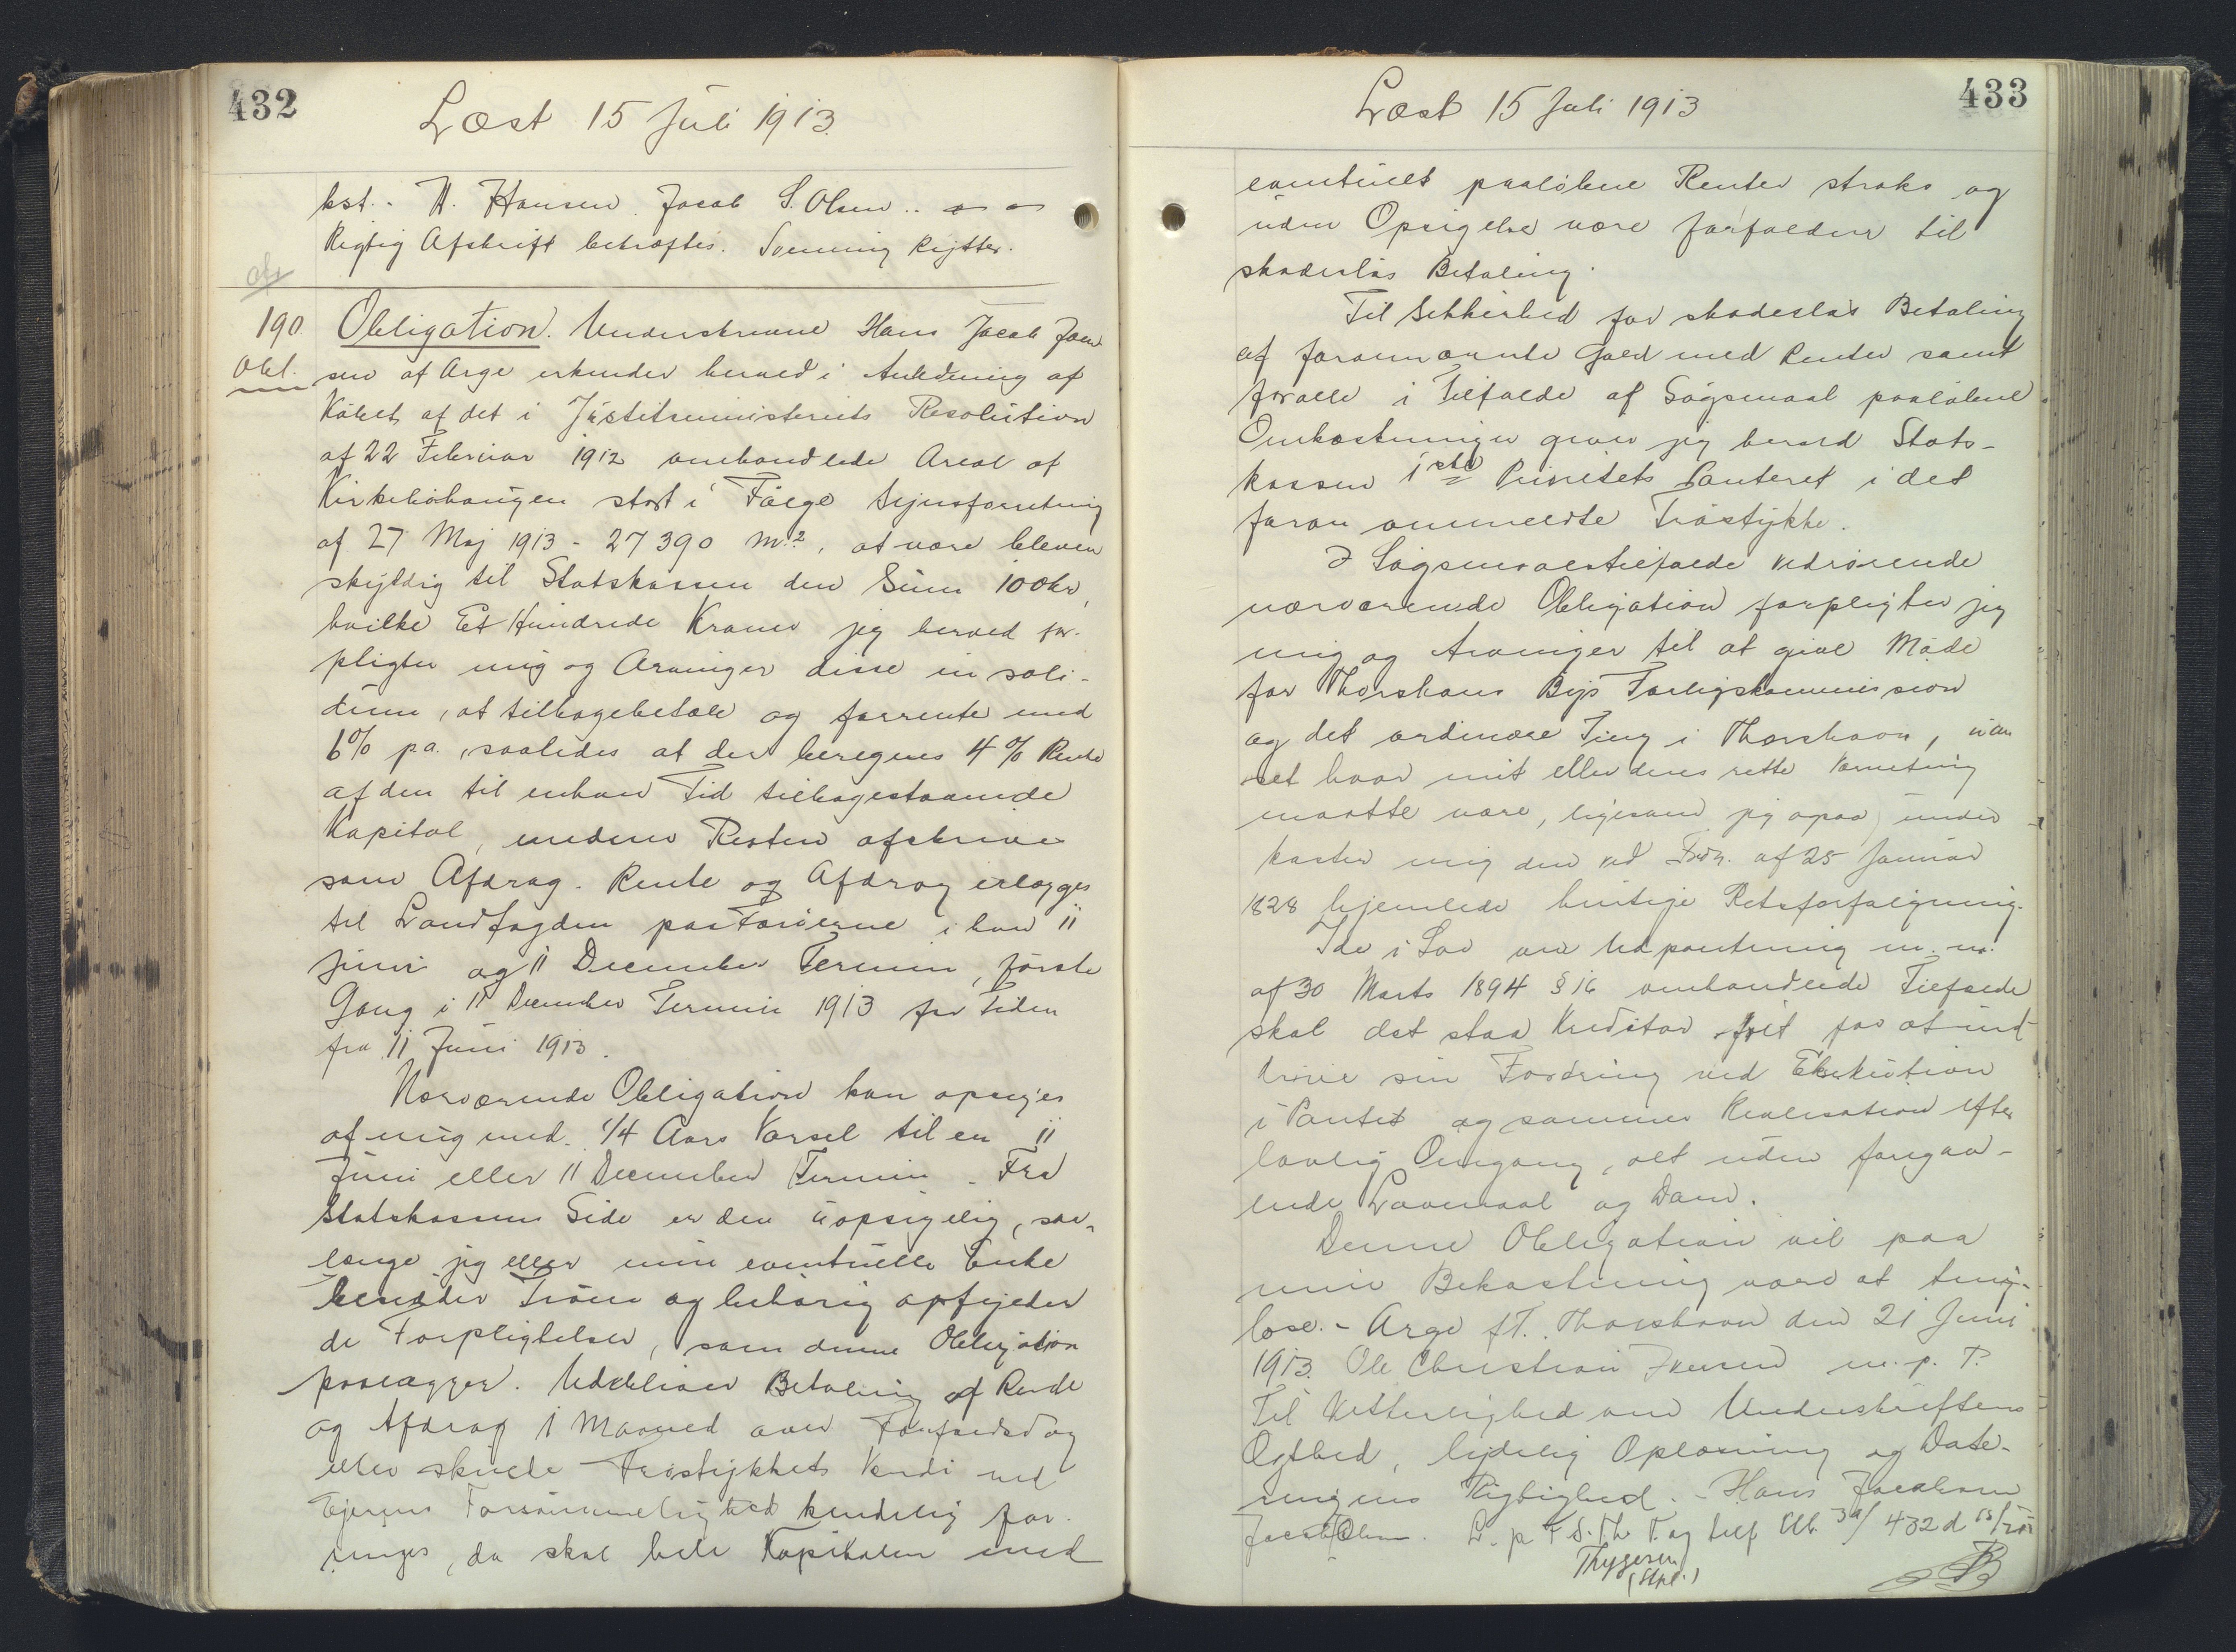 432
Læst 15 Juli 1913.
kst. - H. Hansen. Jacob S. Olsen..
Rigtig Afskrift bekræftes. Svenning Rytter.
190. Obligation. Underskrevne Hans Jacob Joen
Obl. sen af Arge erkender herved i Anledning af
Købet af det i Justitsministeriets Resolution
af 22 Februar 1912 omhandlede Areal af
Kirkebøhaugen stort i Følge Synsforretning
af 27 Maj 1913 - 27390 m.², at være bleven
skyldig til Statskassen den Sum 100 kr,
hvilke Et Hundrede Kroner jeg herved for-
pligter mig og Arvinger disse in soli-
dum, at tilbagebetale og forrente med
6% pa., saaledes at der beregnes 4% Rente
af den til enhver Tid tilbagestaaende
Kapital, medens Resten afskrives
som Afdrag. Rente og Afdrag erlægges
til Landfogden paa Færøerne i hver 11
Juni og 11 December Termin, første
Gang i 11 December Termin 1913 for Tiden
fra 11 Juni 1913.
Nærværende Obligation kan opsiges
af mig med 1/4 Aars Varsel til en 11
Juni eller 11 December Termin. Fra
Statskassens Side er den uopsigelig, saa-
længe jeg eller min eventuelle Enke
besidder Trøen og behørig opfylder
de Forpligtelser, som denne Obligation
paalægger. Udebliver Betaling af Rente
og Afdrag 1 Maaned over Forfaldsdag
eller skulde Trøstykkets Værdi ved
Ejerens Forsømmelighed kendelig for-
ringes, da skal hele Kapitalen med
433
Læst 15 Juli 1913
eventuelt paaløbne Renter straks og
uden Opsigelse være forfalden til
skadesløs Betaling.
Til Sikkerhed for skadesløs Betaling
af forannævnte Gæld med Renter samt
for alle i Tilfælde af Søgsmaal paaløbne
Omkostninger giver jeg herved Stats-
kassen 1ste Prioritets Panteret i det
foran ommeldte Trøstykke.
I Søgsmaalstilfælde vedrørende
nærværende Obligation forpligter jeg
mig og Arvinger til at give Møde
for Thorshavns Bys Forligskommission
og det ordinære Ting i Thorshavn, uan
set hvor mit eller deres rette Værneting
maatte være, ligesom jeg ogsaa under
kaster mig den ved Frdn. af 25 Januar
1828 hjemlede hurtige Retsforfølgning.
I de i Lov om Udpantning m. m.
af 30 Marts 1894 § 16 omhandlede Tilfælde
skal det staa Kreditor frit for at ind-
drive sin Fordring ved Eksekution
i Pantet og sammes Realisation efter
lovlig Omgang, alt uden foregaa-
ende Lovmaal og Dom.
Denne Obligation vil paa
min Bekostning være at ting-
læse. - Arge f.T. Thorshavn den 21 Juni
1913. Ole Christian Joensen m. p. P.
Til Vitterlighed om Underskriftens
Ægthed, lydelig Oplæsning og Date-
ringens Rigtighed. - Hans Jacobsen
Jacob Olsen. L. p. F. S. Th. T. og
Thygesen
(Stpl.)